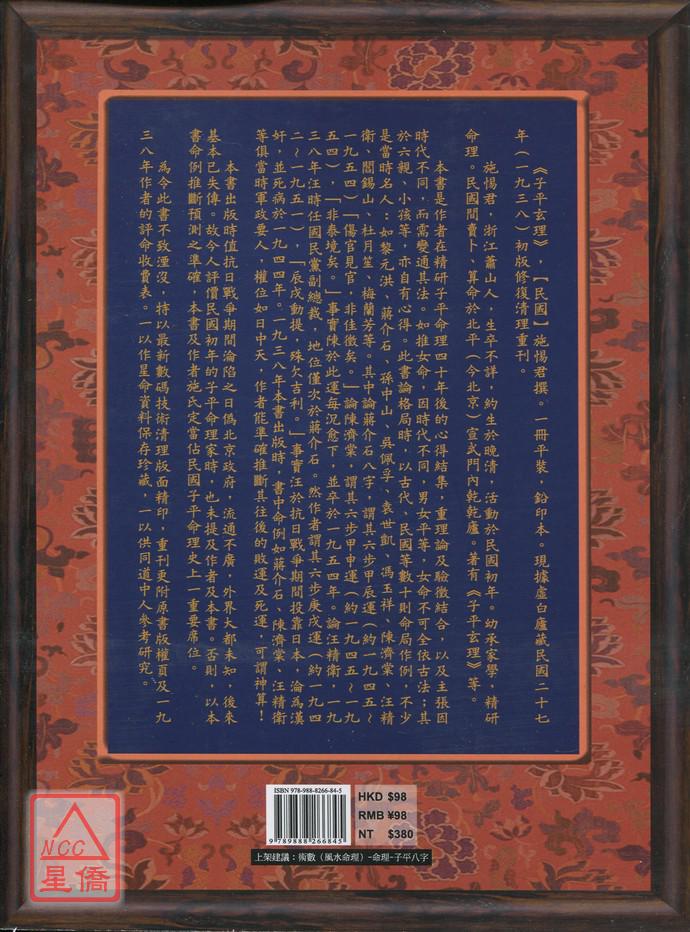 《子平玄理》，【民國】施惕君撰。一冊平裝，鉛印本。現據虛白廬藏民國二十七
年（一九三八）初版修復清理重刊。
施惕君，浙江蕭山人，生卒不詳，約生於晚清，活動於民國初年。幼承家學，精研
命理。民國間賣卜、算命於北平（今北京）宣武門內乾乾廬。著有《子平玄理》等。
本書是作者在精研子平命理四十年後的心得結集，重理論及驗徵結合，以及主張因
時代不同，而需變通其法。如推女命，因時代不同，男女平等，女命不可全依古法；其
於六親、小孩等，亦自有心得。此書論格局時，以古代、民國等數十則命局作例，不少
是當時名人：如黎元洪、蔣介石、孫中山、吳佩孚、袁世凱、馮玉祥、陳濟棠、汪精
衛、閻錫山、杜月笙、梅蘭芳等。其中論蔣介石八字，謂其六步甲辰運（約一九四五～
一九五四）「傷官見官，非佳徵矣。」論陳濟棠，謂其六步甲申運（約一九四五～一九
五四），「非泰境矣。」事實陳於此運每況愈下，並卒於一九五四年。論汪精衛，一九
三八年汪時任國民黨副總裁，地位僅次於蔣介石。然作者謂其六步庚戌運（約一九四
二～一九五一），「辰戌動提，殊欠吉利。」事實汪於抗日戰爭期間投靠日本，淪為漢
奸，並死病於一九四四年。一九三八年本書出版時，書中命例如蔣介石、陳濟棠、汪精衛
等俱當時軍政要人，權位如日中天，作者能準確推斷其往後的敗運及死運，可謂神算！
本書出版時值抗日戰爭期間淪陷之日偽北京政府，流通不廣，外界大都未知，後來
基本已失傳。故今人評價民國初年的子平命理家時，也未提及作者及本書。否則，以本
書命例推斷預測之準確，本書及作者施氏定當佔民國子平命理史上一重要席位。
為令此書不致湮沒，特以最新數碼技術清理版面精印，重刊更附原書版權頁及一九
三八年作者的評命收費表。一以作星命資料保存珍藏，一以供同道中人參考研究。
ISBN 978-988-8266-84-5
9 789888 266845
HKD $98
RMB ¥98
NT $380
上架建議：術數（風水命理）-命理-子平八字
NCC
星僑